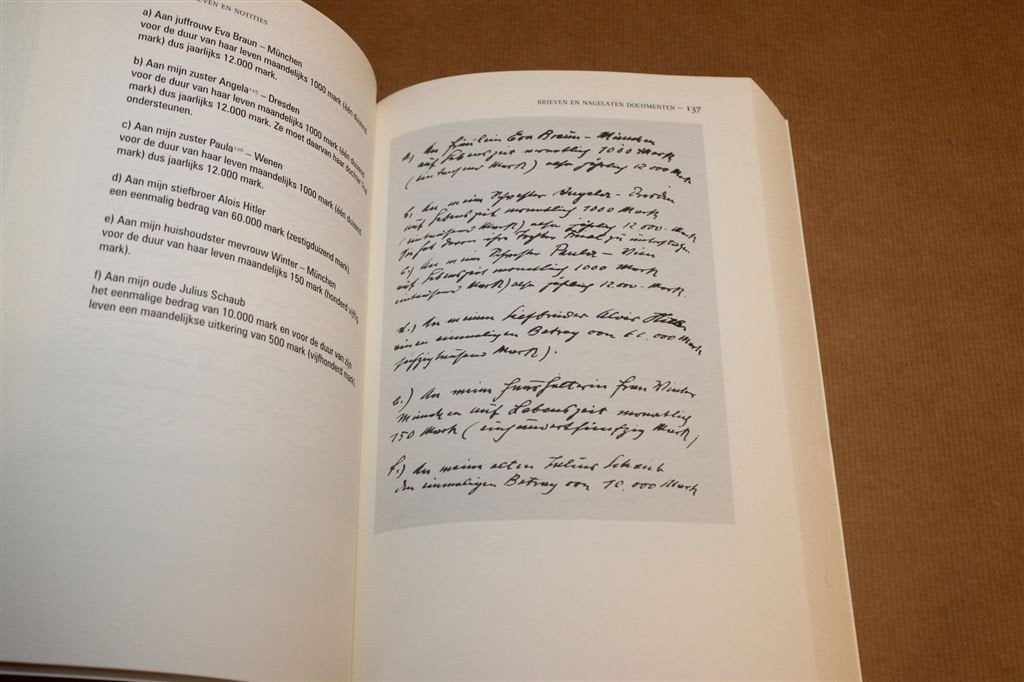 EVEN EN NOTITIES
a) Aan juffrouw Eva Braun – München
voor de duur van haar leven maandelijks 1000 mark (één duizend
mark) dus jaarlijks 12.000 mark.
b) Aan mijn zuster Angela¹²⁵ – Dresden
voor de duur van haar leven maandelijks 1000 mark (één duizend
mark) dus jaarlijks 12.000 mark. Ze moet daarvan haar dochter
ondersteunen.
c) Aan mijn zuster Paula¹²⁶ – Wenen
voor de duur van haar leven maandelijks 1000 mark (één duizend
mark) dus jaarlijks 12.000 mark.
d) Aan mijn stiefbroer Alois Hitler
een eenmalig bedrag van 60.000 mark (zestigduizend mark).
e) Aan mijn huishoudster mevrouw Winter – München
voor de duur van haar leven maandelijks 150 mark (honderd vijftig
mark).
f) Aan mijn oude Julius Schaub
het eenmalige bedrag van 10.000 mark en voor de duur van zijn
leven een maandelijkse uitkering van 500 mark (vijfhonderd mark).
BRIEVEN EN NAGELATEN DOCUMENTEN – 137
a) An Fräulein Eva Braun – München
auf Lebenszeit monatlich 1000 Mark
(eintausend Mark) also jährlich 12000 Mark
b) An meine Schwester Angela – Dresden
auf Lebenszeit monatlich 1000 Mark
(eintausend Mark) also jährlich 12000 Mark
c) An meine Schwester Paula – Wien
auf Lebenszeit monatlich 1000 Mark
(eintausend Mark) also jährlich 12000 Mark.
d.) An meinen Stiefbruder Alois Hitler
einen einmaligen Betrag von 60.000 Mark
(sechzigtausend Mark).
e.) An meine Haushälterin Frau Winter
München auf Lebenszeit monatlich
150 Mark (einhundertfünfzig Mark)
f.) An meinen alten Julius Schaub
den einmaligen Betrag von 10.000 Mark